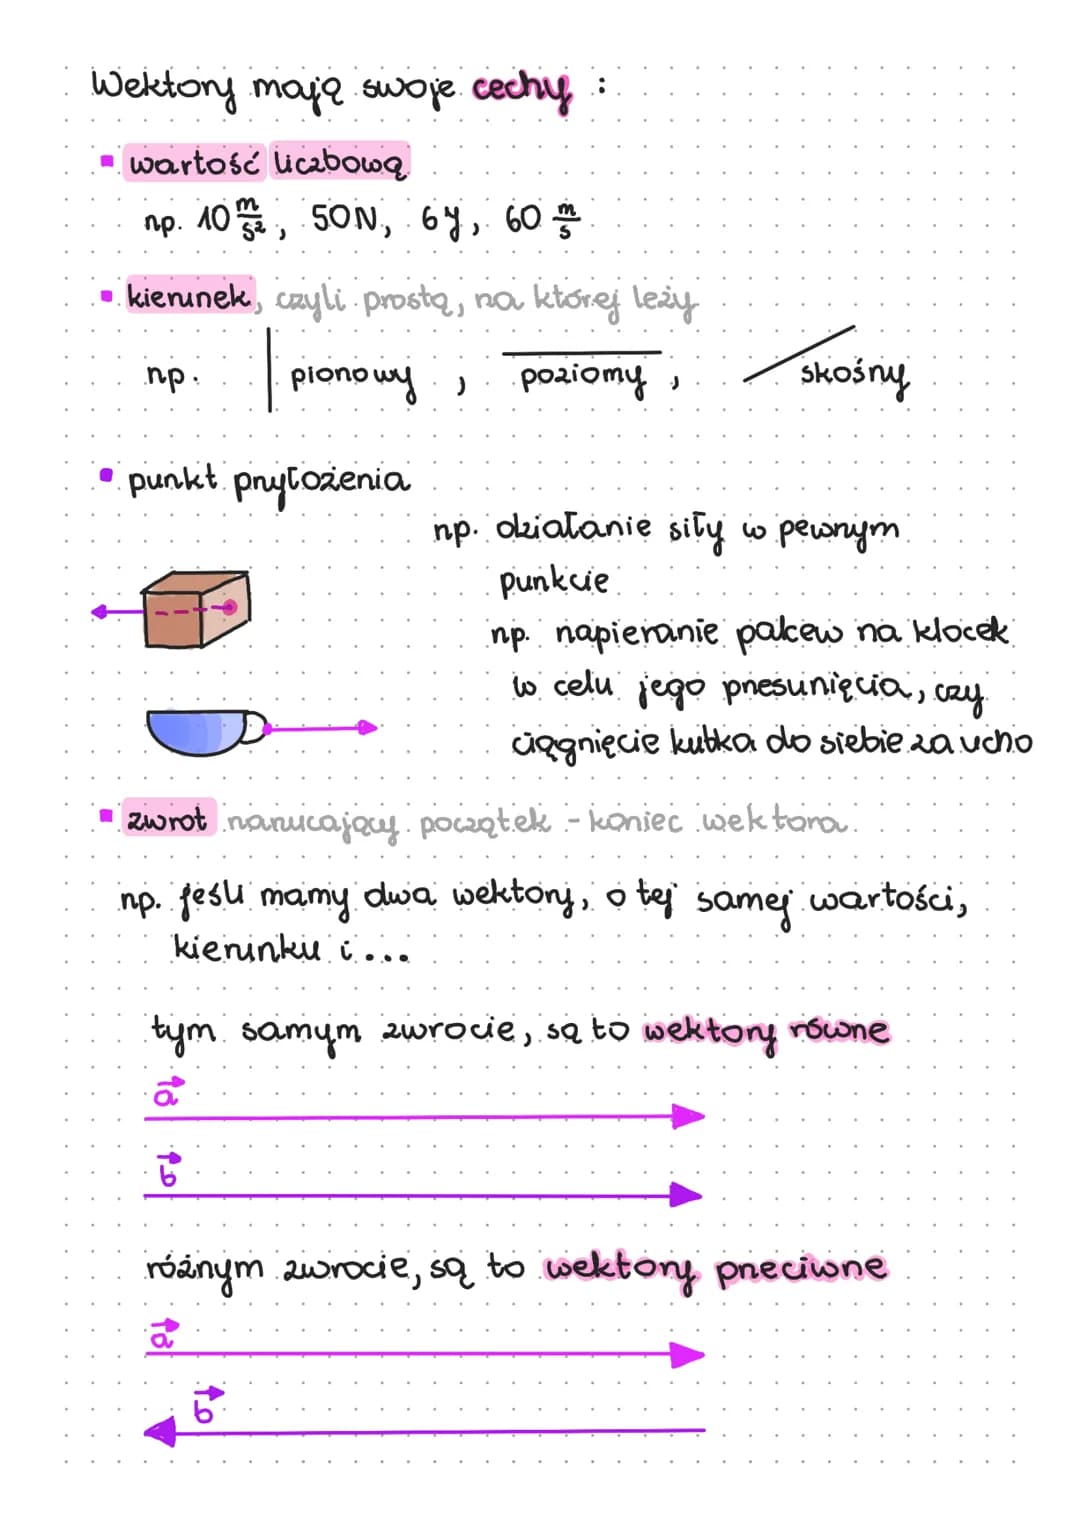 Wektory mają swoje cechy :
wartość liczbową
np. 10 m/s², 50N, 6y, 60 m/s
kierunek, czyli prostą, na której leży
np. pionowy, poziomy, skośny
punkt przyłożenia
np. działanie siły w pewnym
punkcie
np. napieranie palcew na klocek
w celu jego przesunięcia, czy
ciągnięcie kubka do siebie za ucho
zwrot narzucający początek - koniec wektora
np. jeśli mamy dwa wektory, o tej samej wartości,
kierunku i ...
tym samym zwrocie, są to wektory równe
a
b
różnym zwrocie, są to wektory przeciwne
a
b